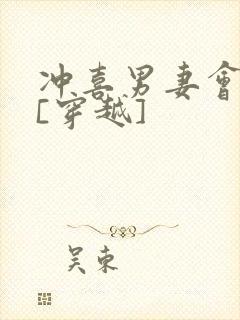 冲喜男妻會
[穿越]
吴東